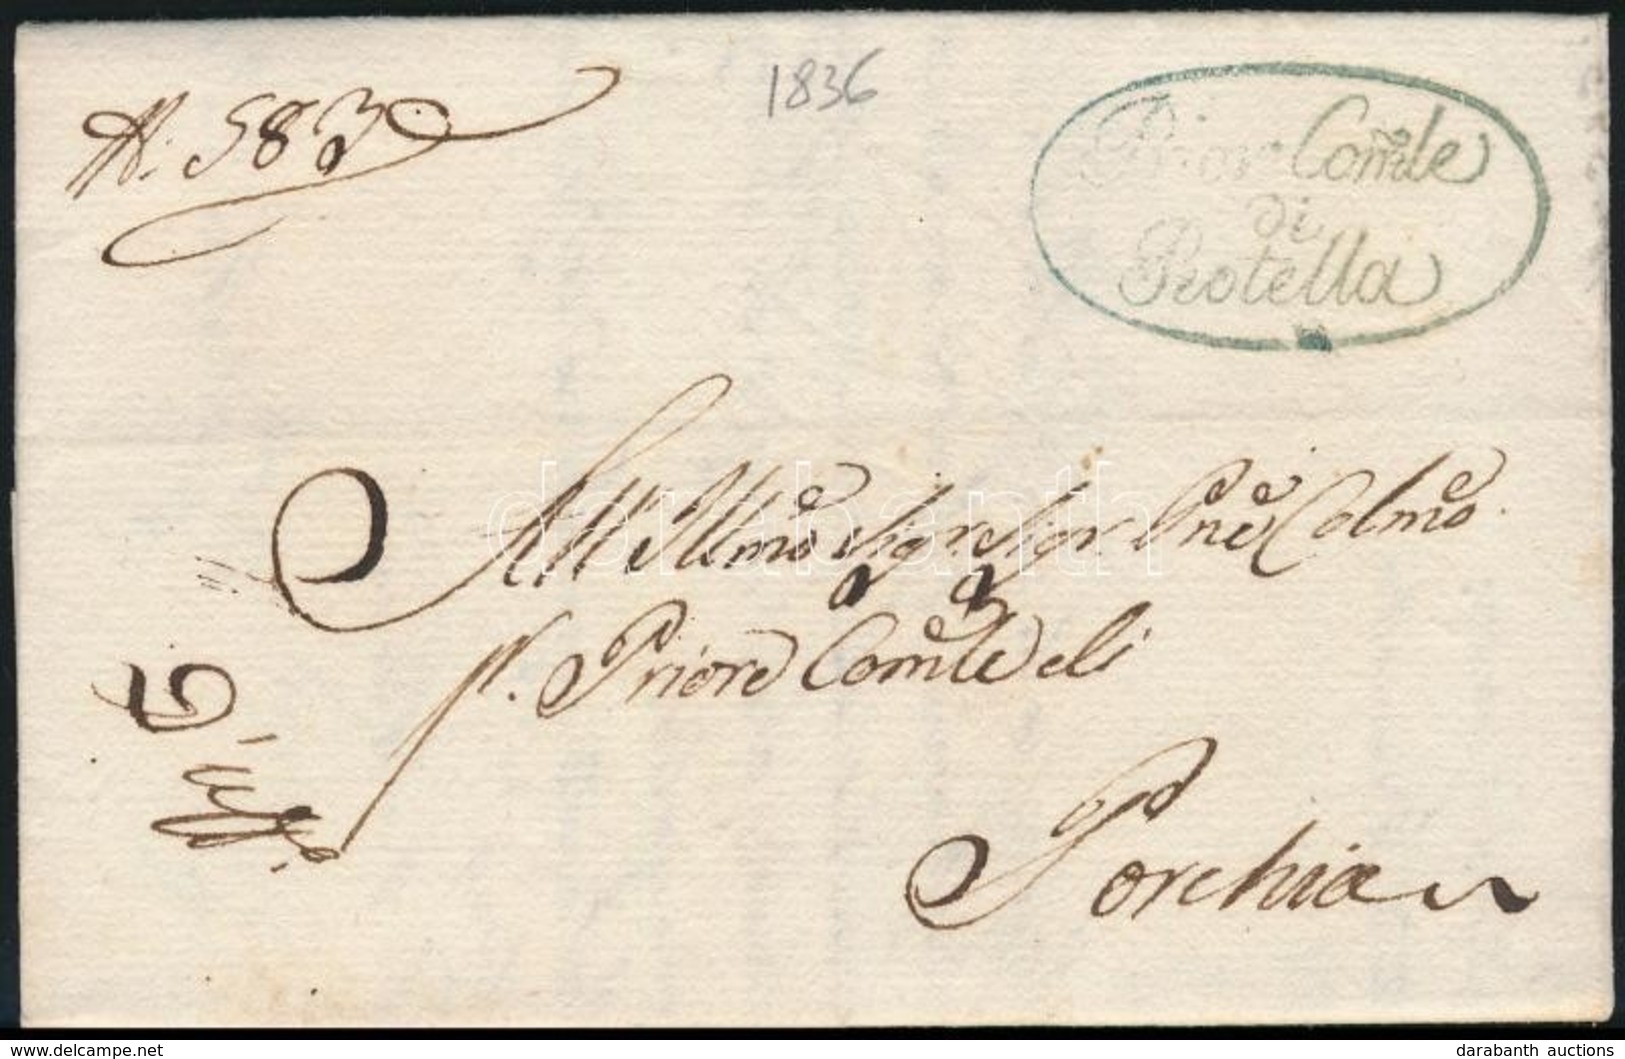 N. 583
1836
Priore Comle
di
Rotella
All' Illmo Sigr. Sigr. Pne Colmo
Priore Comle di
Porchia
darabanth
delcampe.net
darabanth auctions